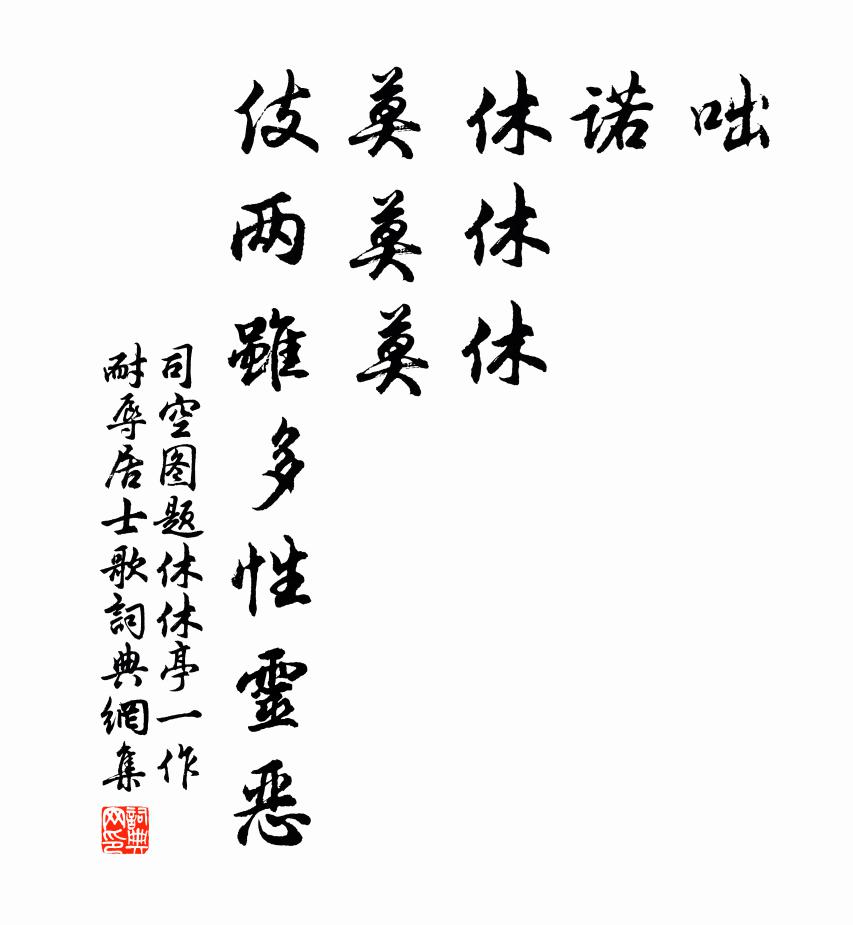 咄
诺
休休休
莫莫莫
伎两雖多性靈恶
司空图题休休亭一作
耐辱居士歌詞典網集
詞典网印